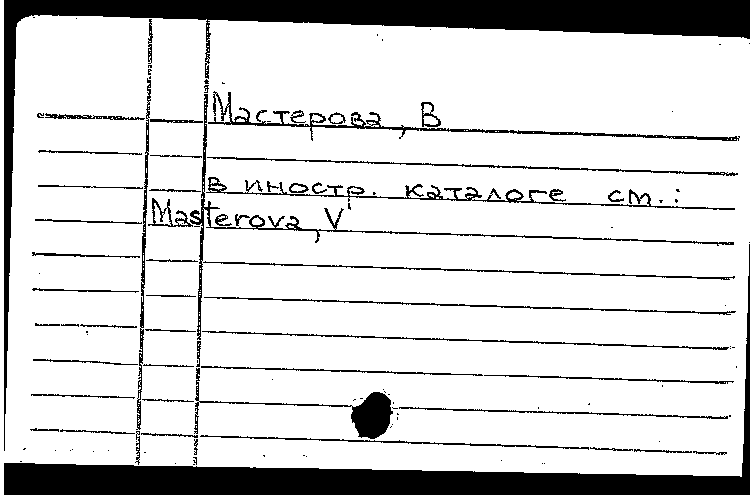 Мастерова, В
в иностр. каталоге см.:
Masterova, V